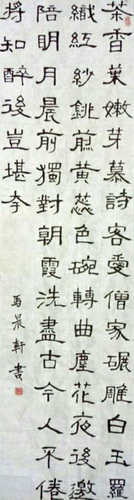 茶香葉嫩芽慕詩客愛僧家碾雕白玉羅
織紅紗銚煎黃蕊色碗轉曲塵花夜後邀
陪明月晨前獨對朝霞洗盡古今人不倦
將知醉後豈堪夸
晨軒書